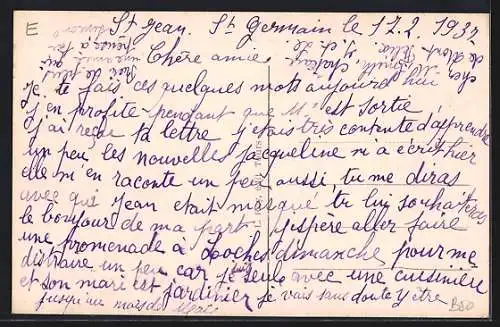 E
St Jean. St Germain le 17.2.1932
Chère amie
Je te fais ces quelques mots aujourd'hui
j'en profite pendant que M est sortie
j'ai reçue ta lettre j'étais très contente d'apprendre
un peu les nouvelles Jacqueline m'a écrit hier
elle m'en raconte un peu aussi, tu me diras
avec qui Jean était masque tu lui souhaiteras
le bonjour de ma part j'espère aller faire
une promenade à Loches dimanche pour me
distraire un peu car je suis seule avec une cuisinière
et son mari est jardinier je vais sans doute y être
jusqu'au mois de
B60